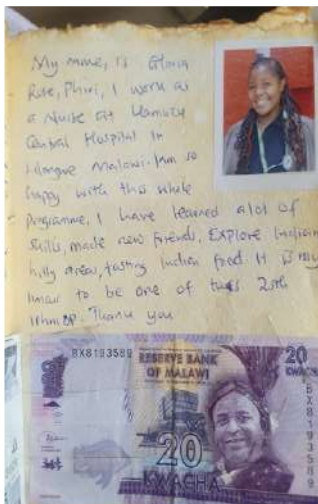 My name, is Gloria
Rose, Phiri, I work as
a Nurse at Kamuzu
Central Hospital In
Lilongwe Malawi. Im so
happy with this whole
Programme, I have learned alot of
Skills, made new friends, Explore Indian
hilly area, tasting Indian food it is my
honor to be one of this 25th
Thank you
BX8193589
RESERVE BANK
OF MALAWI
20
KWACHA
BX8193589
20
KWACHA